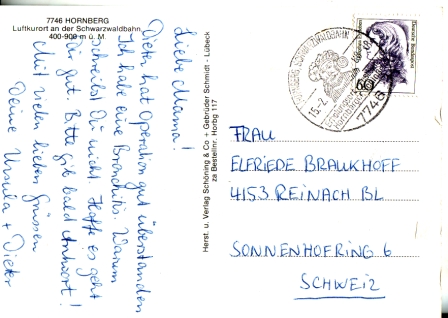 7746 HORNBERG
Luftkurort an der Schwarzwaldbahn
400-900 m ü. M.
Liebe Mama!
Dieter hat Operation gut überstanden
Ich habe eine Bronchitis. Warum
schreibst Du nicht. Hoffe es geht
Dir gut. Bitte gib bald Antwort!
Mit vielen lieben Grüssen
Deine Ursula + Dieter
Herst. u. Verlag Schöning & Co + Gebrüder Schmidt - Lübeck
zu Bestellnr. Horbg 117
HORNBERG, SCHWARZWALDBAHN
15.-2
7746
60
Deutsche Bundespost
FRAU
ELFRIEDE BRAUKHOFF
4153 REINACH BL
SONNENHOFRING 6
SCHWEIZ